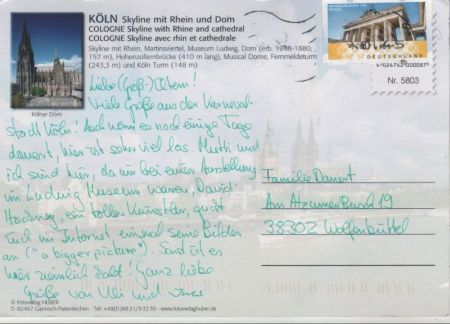 KÖLN Skyline mit Rhein und Dom
COLOGNE Skyline with Rhine and cathedral
COLOGNE Skyline avec rhin et cathedrale
Skyline mit Rhein, Martinsviertel, Museum Ludwig, Dom (erb. 1248-1880,
157 m), Hohenzollernbrücke (410 m lang), Musical Dome, Fernmeldeturm
(243,3 m) und Köln Turm (148 m)
Kölner Dom
DEUTSCHLAND
Nr. 5803
Liebe (Groß-) Eltern!
Viele Grüße aus der Karneval-
stadt Köln! Auch wenn es noch einige Tage
dauert, hier ist schon viel los. Mutti und
ich sind hier, da wir bei einer Ausstellung
im Ludwig Museum waren, David
Hockney, ein toller Künstler, guckt
Euch im Internet einmal seine Bilder
an ("a bigger picture"). Sonst ist es
hier ziemlich kalt! Ganz liebe
Grüße von und
Familie
Am Atzumer Busch 19
38302 Wolfenbüttel
© Fotoverlag HUBER
D-82467 Garmisch-Partenkirchen Tel: +49(0)88 21/9 33 50 www.fotoverlaghuber.de